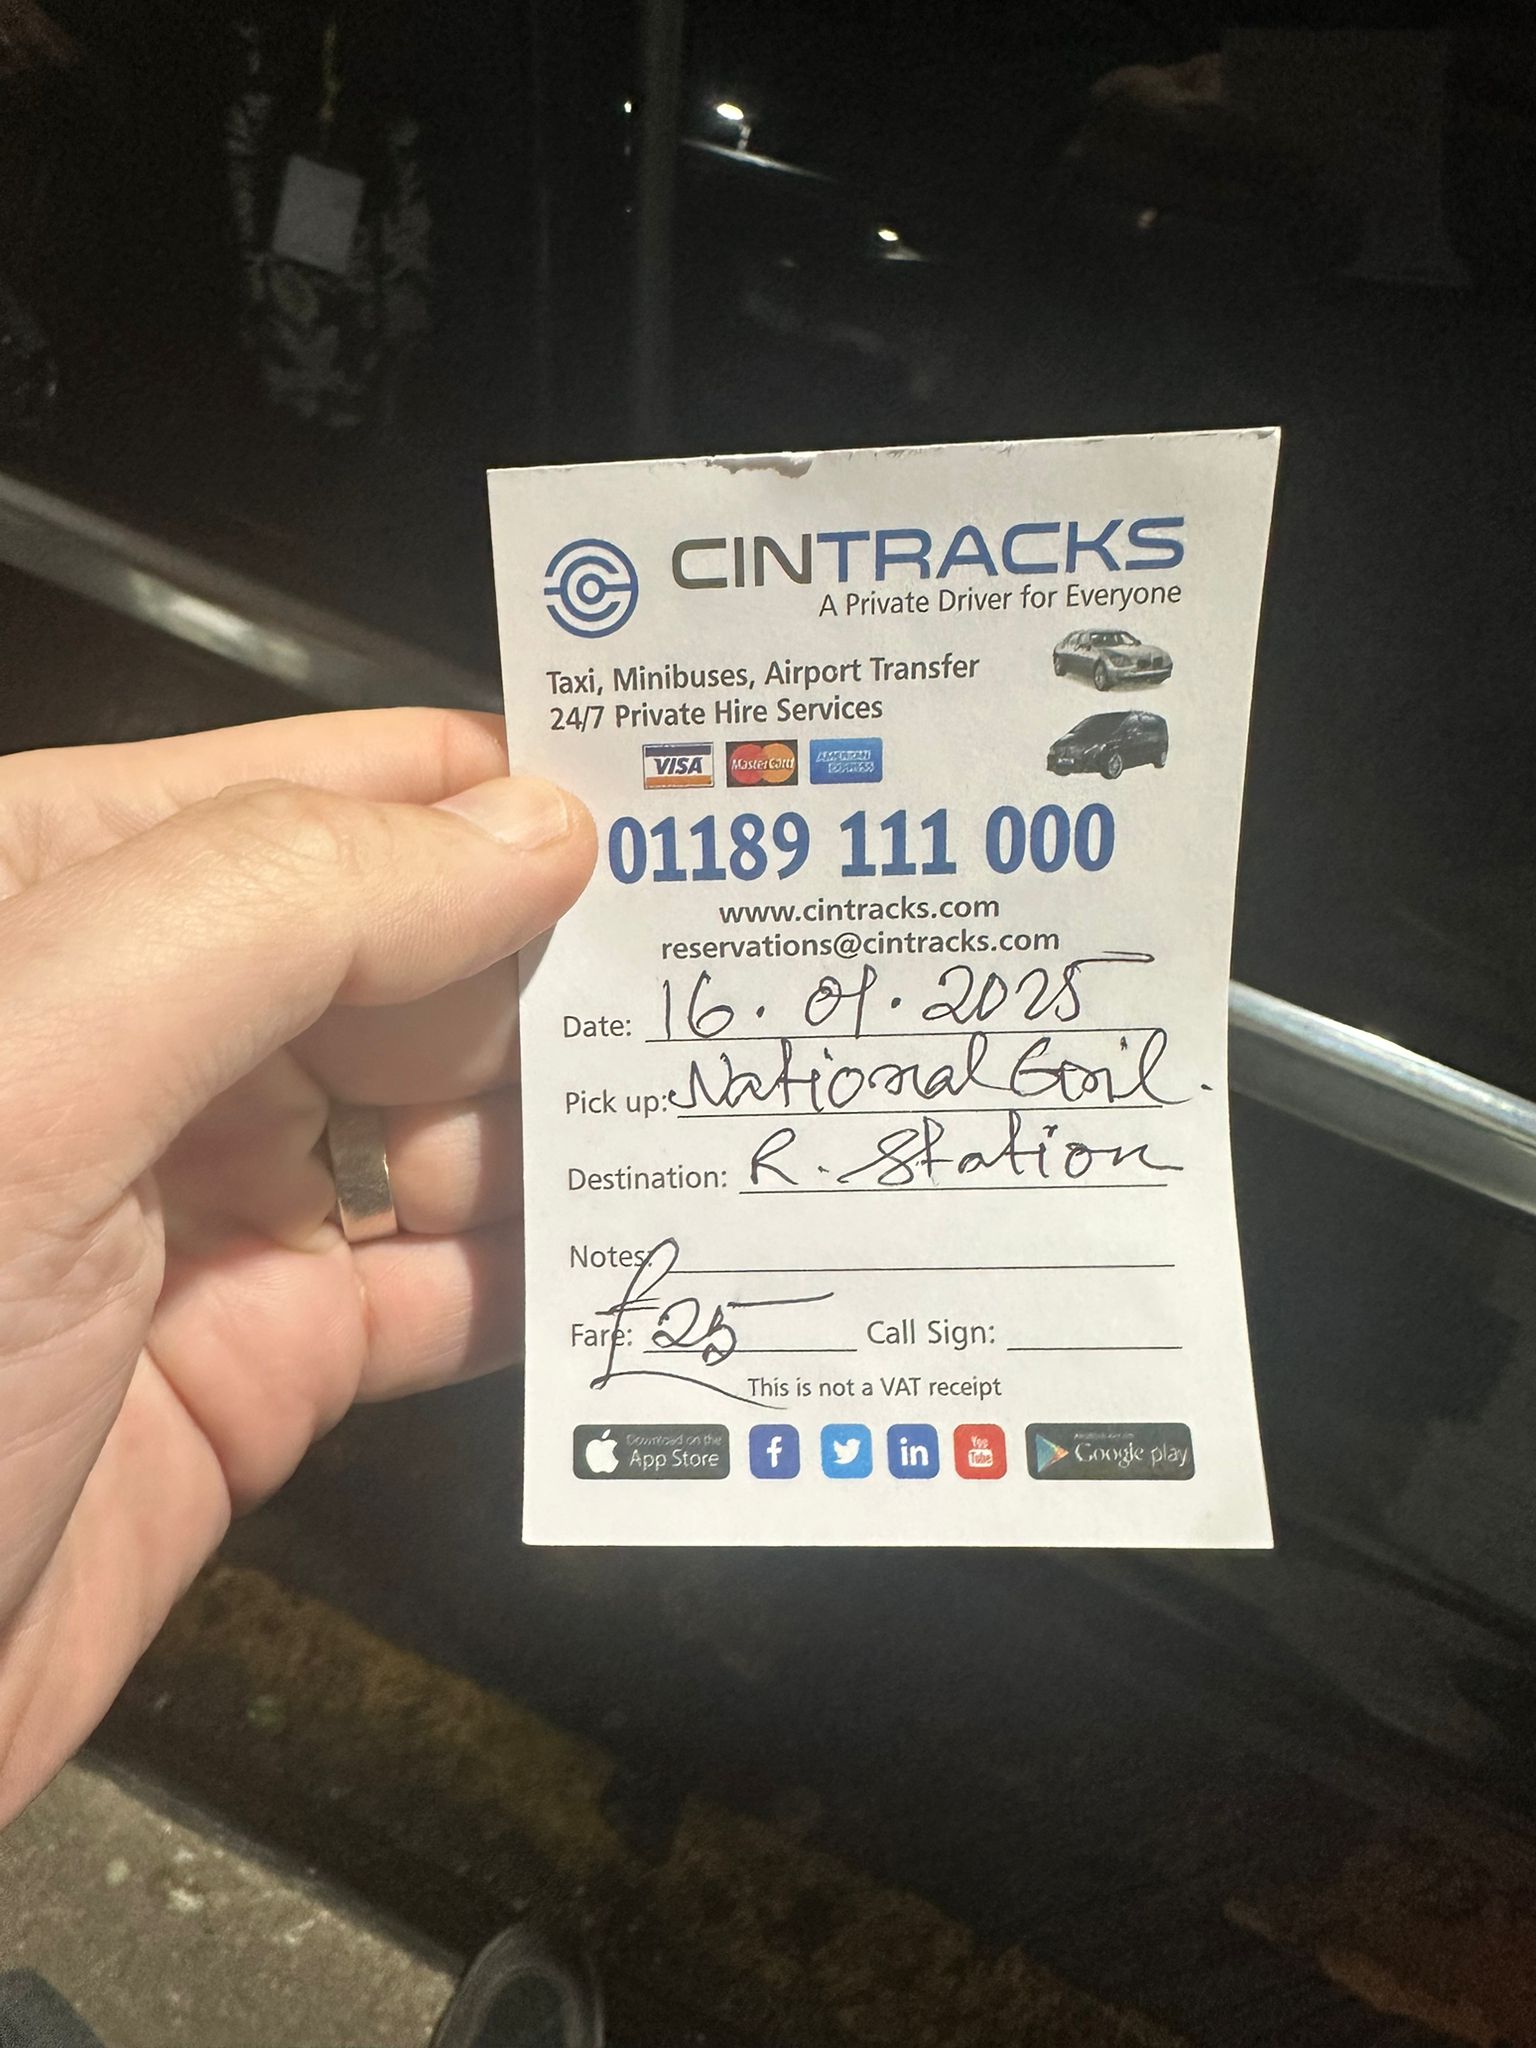 CINTRACKS
A Private Driver for Everyone
Taxi, Minibuses, Airport Transfer
24/7 Private Hire Services
VISA MasterCard AMERICAN EXPRESS
01189 111 000
www.cintracks.com
reservations@cintracks.com
Date: 16.01.2025
Pick up: National
Destination: R. Station
Notes:
Fare: £25 Call Sign:
This is not a VAT receipt
Download on the
App Store f in You Tube Google play